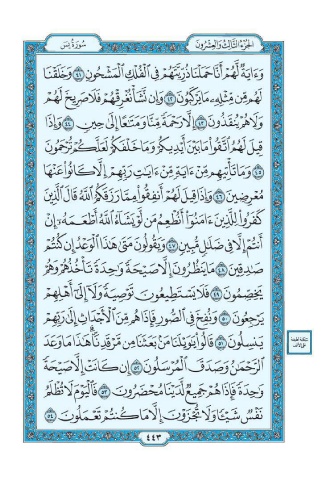 الجزء الثالث والعشرون
سورة يس
وَءَايَةٌ لَّهُمْ أَنَّا حَمَلْنَا ذُرِّيَّتَهُمْ فِي الْفُلْكِ الْمَشْحُونِ ٤١ وَخَلَقْنَا
لَهُم مِّن مِّثْلِهِ مَا يَرْكَبُونَ ٤٢ وَإِن نَّشَأْ نُغْرِقْهُمْ فَلَا صَرِيخَ لَهُمْ
وَلَا هُمْ يُنقَذُونَ ٤٣ إِلَّا رَحْمَةً مِّنَّا وَمَتَاعًا إِلَىٰ حِينٍ ٤٤ وَإِذَا
قِيلَ لَهُمُ اتَّقُوا مَا بَيْنَ أَيْدِيكُمْ وَمَا خَلْفَكُمْ لَعَلَّكُمْ تُرْحَمُونَ
٤٥ وَمَا تَأْتِيهِم مِّنْ ءَايَةٍ مِّنْ ءَايَٰتِ رَبِّهِمْ إِلَّا كَانُوا عَنْهَا
مُعْرِضِينَ ٤٦ وَإِذَا قِيلَ لَهُمْ أَنفِقُوا مِمَّا رَزَقَكُمُ اللَّهُ قَالَ الَّذِينَ
كَفَرُوا لِلَّذِينَ ءَامَنُوا أَنُطْعِمُ مَن لَّوْ يَشَاءُ اللَّهُ أَطْعَمَهُ إِنْ
أَنتُمْ إِلَّا فِي ضَلَٰلٍ مُّبِينٍ ٤٧ وَيَقُولُونَ مَتَىٰ هَٰذَا الْوَعْدُ إِن كُنتُمْ
صَٰدِقِينَ ٤٨ مَا يَنظُرُونَ إِلَّا صَيْحَةً وَٰحِدَةً تَأْخُذُهُمْ وَهُمْ
يَخِصِّمُونَ ٤٩ فَلَا يَسْتَطِيعُونَ تَوْصِيَةً وَلَا إِلَىٰ أَهْلِهِمْ
يَرْجِعُونَ ٥٠ وَنُفِخَ فِي الصُّورِ فَإِذَا هُم مِّنَ الْأَجْدَاثِ إِلَىٰ رَبِّهِمْ
يَنسِلُونَ ٥١ قَالُوا يَٰوَيْلَنَا مَن بَعَثَنَا مِن مَّرْقَدِنَا هَٰذَا مَا وَعَدَ
الرَّحْمَٰنُ وَصَدَقَ الْمُرْسَلُونَ ٥٢ إِن كَانَتْ إِلَّا صَيْحَةً
وَٰحِدَةً فَإِذَا هُمْ جَمِيعٌ لَّدَيْنَا مُحْضَرُونَ ٥٣ فَالْيَوْمَ لَا تُظْلَمُ
نَفْسٌ شَيْئًا وَلَا تُجْزَوْنَ إِلَّا مَا كُنتُمْ تَعْمَلُونَ ٥٤
٤٤٣